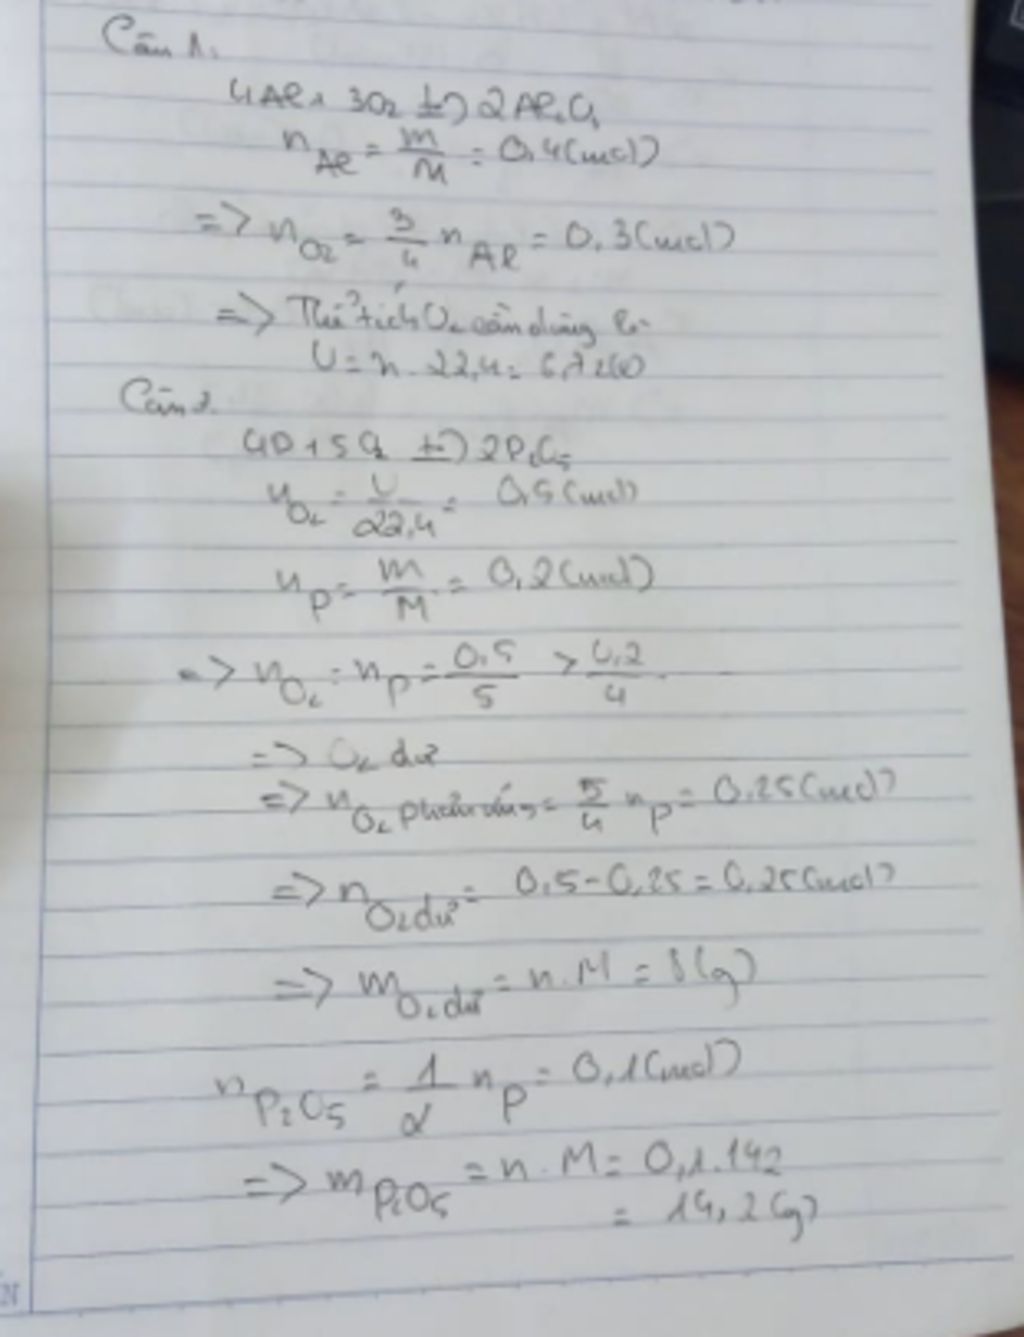 Câu 1.
4Al + 3O2 t°→ 2Al2O3
nAl = m/M = 0,4(mol)
=> nO2 = 3/4 nAl = 0,3(mol)
=> Thể tích O2 cần dùng là:
V = n . 22,4 = 6,72(l)
Câu 2.
4P + 5O2 t°→ 2P2O5
nO2 = V/22,4 = 0,5(mol)
nP = m/M = 0,2(mol)
=> nO2 : nP = 0,5/5 > 0,2/4
=> O2 dư
=> nO2 phản ứng = 5/4 nP = 0,25(mol)
=> nO2 dư = 0,5 - 0,25 = 0,25(mol)
=> mO2 dư = n.M = 8(g)
nP2O5 = 1/2 nP = 0,1(mol)
=> mP2O5 = n.M = 0,1.142
= 14,2(g)